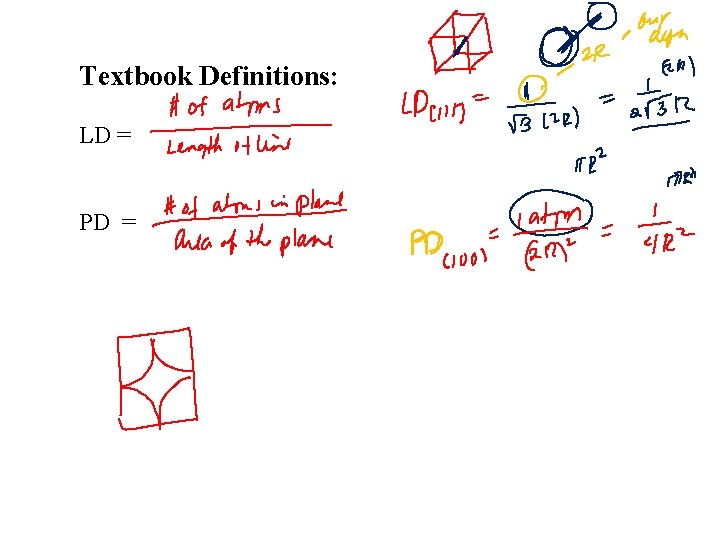 Textbook Definitions:
LD = # of atoms / Length of line
PD = # of atoms in plane / Area of the plane
2R, our defn
LD[111] = 1 / √3 (2R) = 1 / 2√3 R
(2R)
πR²
PD(100) = 1 atom / (2R)² = 1 / 4R²